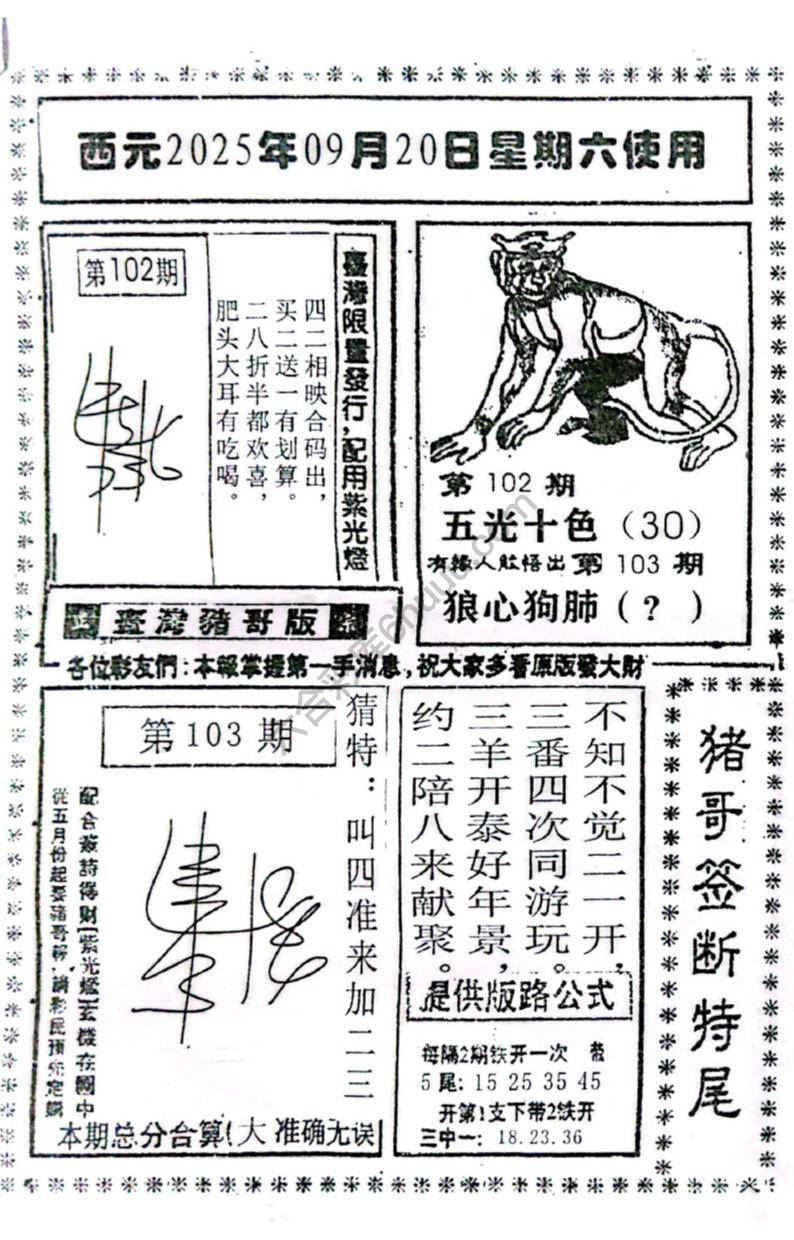 西元2025年09月20日星期六使用
第102期
四二相映合码出，
买二送一有划算。
二八折半都欢喜，
肥头大耳有吃喝。
臺灣限量發行，配用紫光燈
臺灣豬哥版
第 102 期
五光十色（30）
有緣人能悟出第 103 期
狼心狗肺（？）
各位彩友們：本報掌握第一手消息，祝大家多看原版發大財
第 103 期
猜特：叫四准来加二三
從五月份起要豬哥報，請彩民預先定購
本期总分合算(大 准确无误
不知不觉二一开，
三番四次同游玩。
三羊开泰好年景，
约二陪八来献聚。
提供版路公式
每隔2期铁开一次
5尾：15 25 35 45
开第1支下带2铁开
三中一：18.23.36
猪哥签断特尾